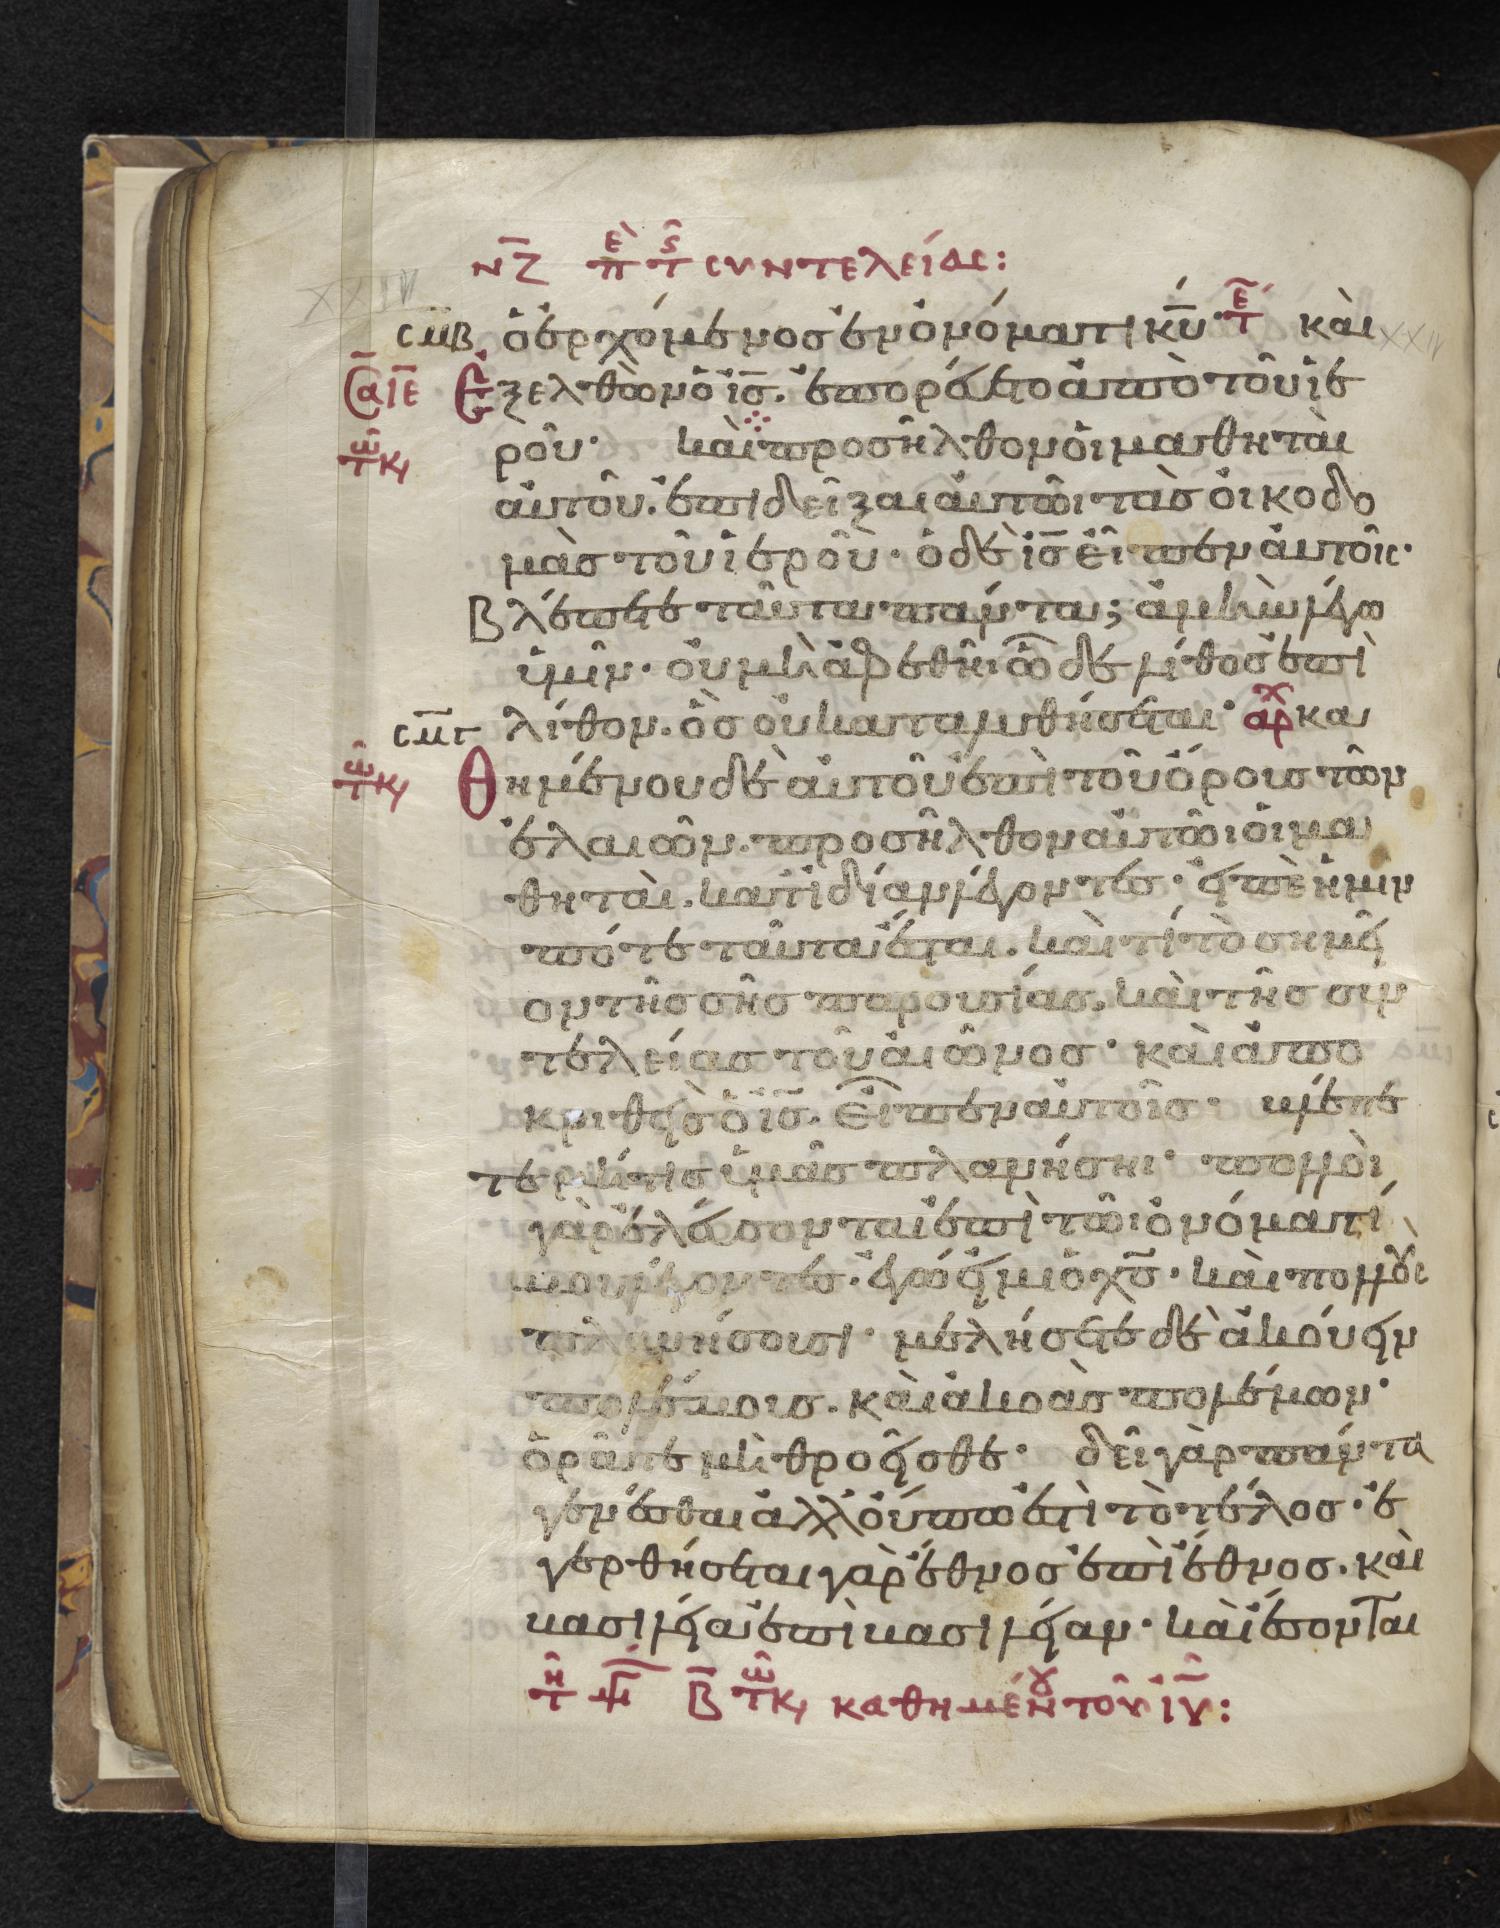 ν̅ζ̅ πὲ τς̑ συντελείας:
XXIV
σμ̅β ὁ ἐρχόμενος ἐν ὀνόματι κ̅υ̅· τ̅ε̅ καὶ XXIV
α̅ ι̅ε̅ Ἐξελθὼν ὁ ι̅σ̅. ἐπορεύετο ἀπὸ τοῦ ἱε
ρου· καὶ προσῆλθον οἱ μαθηταὶ
αὐτοῦ. ἐπιδεῖξαι αὐτῶι τὰσ οἰκοδο
μὰσ τοῦ ἱεροῦ· ὁ δὲ ι̅σ̅ εἶπεν αὐτοῖς·
Βλέπετε ταῦτα πάντα; ἀμὴν λέγω
ὑμῖν· οὐ μὴ ἀφεθῆι ὧδε λίθοσ ἐπὶ
λίθον. ὃσ οὐ καταλυθήσεται· ἀρχ κα
σμ̅γ
Θημένου δὲ αὐτοῦ ἐπὶ τοῦ ὄρουσ τῶν
ἐλαιῶν. προσῆλθον αὐτῶι οἱ μα
θηταὶ. κατιδίαν λέγοντεσ· εἰπὲ ἡμῖν
πότε ταῦτα ἔσται. καὶ τί τὸ σημεῖ
ον τῆσ σῆσ παρουσίασ, καὶ τῆσ συν
τελείασ τοῦ αἰῶνοσ· καὶ ἀπο
κριθεὶσ ὁ ι̅σ̅. εἶπεν αὐτοῖσ· βλέπε
τε μήτισ ὑμᾶσ πλανήσηι· πολλοὶ
γὰρ ἐλεύσονται ἐπὶ τῶι ὀνόματί
μου λέγοντεσ· ἐγώ εἰμι ὁ χ̅σ̅· καὶ πολλοὺς
πλανήσουσι· μελήσετε δὲ ἀκούειν
πολέμουσ. καὶ ἀκοὰσ πολέμων·
ὁρᾶτε μὴ θροεῖσθε· δεῖ γὰρ πάντα
γενέσθαι ἀλλ' οὔπω ἐστὶ τὸ τέλοσ· ἐ
γερθήσεται γὰρ ἔθνοσ ἐπὶ ἔθνοσ. καὶ
βασιλεία ἐπὶ βασιλείαν· καὶ ἔσονται
β̅ καθημένου τοῦ ι̅υ̅: